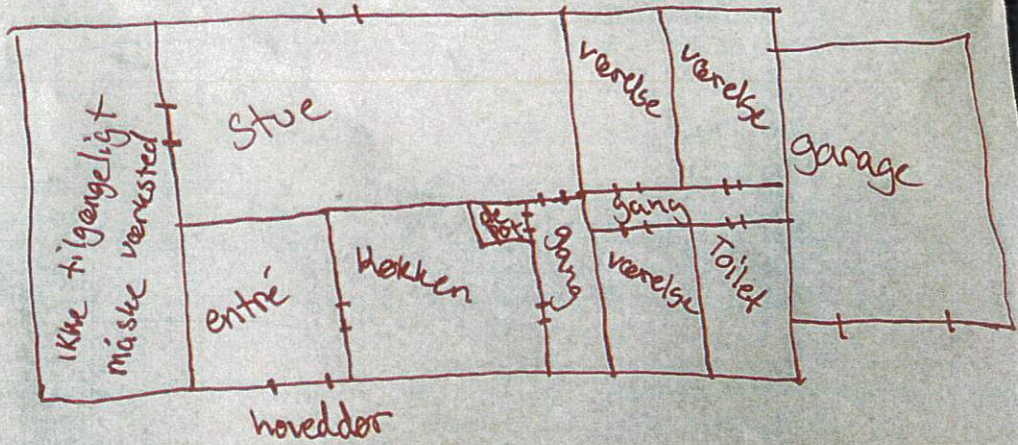 ikke tilgængeligt
måske værksted
stue
værelse
værelse
garage
entré
køkken
de
pot
gang
gang
værelse
Toilet
hoveddør